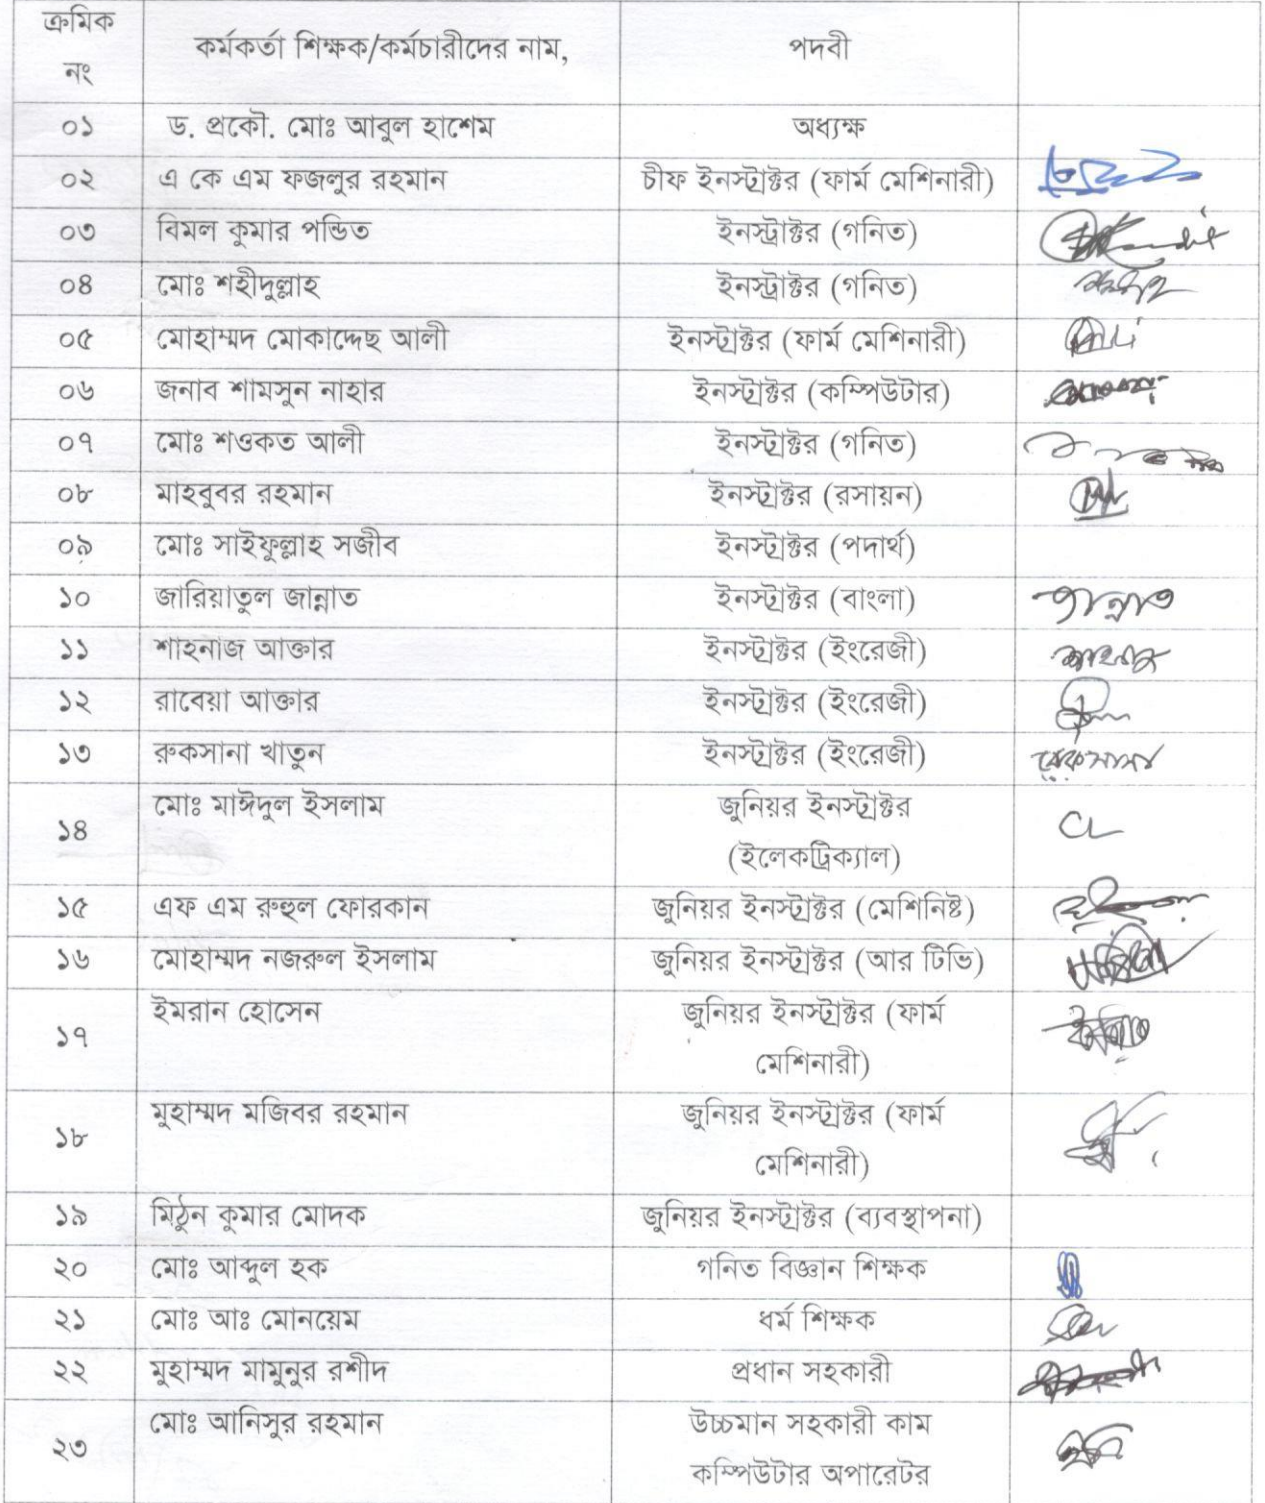 ক্রমিক নং কর্মকর্তা শিক্ষক/কর্মচারীদের নাম, পদবী
০১ ড. প্রকৌ. মোঃ আবুল হাশেম অধ্যক্ষ
০২ এ কে এম ফজলুর রহমান চীফ ইনস্ট্রাক্টর (ফার্ম মেশিনারী)
০৩ বিমল কুমার পন্ডিত ইনস্ট্রাক্টর (গনিত)
০৪ মোঃ শহীদুল্লাহ ইনস্ট্রাক্টর (গনিত)
০৫ মোহাম্মদ মোকাদ্দেছ আলী ইনস্ট্রাক্টর (ফার্ম মেশিনারী)
০৬ জনাব শামসুন নাহার ইনস্ট্রাক্টর (কম্পিউটার)
০৭ মোঃ শওকত আলী ইনস্ট্রাক্টর (গনিত)
০৮ মাহবুবর রহমান ইনস্ট্রাক্টর (রসায়ন)
০৯ মোঃ সাইফুল্লাহ সজীব ইনস্ট্রাক্টর (পদার্থ)
১০ জারিয়াতুল জান্নাত ইনস্ট্রাক্টর (বাংলা) জান্নাত
১১ শাহনাজ আক্তার ইনস্ট্রাক্টর (ইংরেজী) শাহনাজ
১২ রাবেয়া আক্তার ইনস্ট্রাক্টর (ইংরেজী)
১৩ রুকসানা খাতুন ইনস্ট্রাক্টর (ইংরেজী)
১৪ মোঃ মাঈদুল ইসলাম জুনিয়র ইনস্ট্রাক্টর CL
(ইলেকট্রিক্যাল)
১৫ এফ এম রুহুল ফোরকান জুনিয়র ইনস্ট্রাক্টর (মেশিনিষ্ট)
১৬ মোহাম্মদ নজরুল ইসলাম জুনিয়র ইনস্ট্রাক্টর (আর টিভি)
১৭ ইমরান হোসেন জুনিয়র ইনস্ট্রাক্টর (ফার্ম
মেশিনারী)
১৮ মুহাম্মদ মজিবর রহমান জুনিয়র ইনস্ট্রাক্টর (ফার্ম
মেশিনারী)
১৯ মিঠুন কুমার মোদক জুনিয়র ইনস্ট্রাক্টর (ব্যবস্থাপনা)
২০ মোঃ আব্দুল হক গনিত বিজ্ঞান শিক্ষক
২১ মোঃ আঃ মোনয়েম ধর্ম শিক্ষক
২২ মুহাম্মদ মামুনুর রশীদ প্রধান সহকারী
২৩ মোঃ আনিসুর রহমান উচ্চমান সহকারী কাম
কম্পিউটার অপারেটর